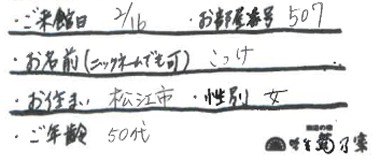 ・ご来館日 2/16 ・お部屋番号 507
・お名前(ニックネームでも可) こつけ
・お住まい 松江市 ・性別 女
・ご年齢 50代